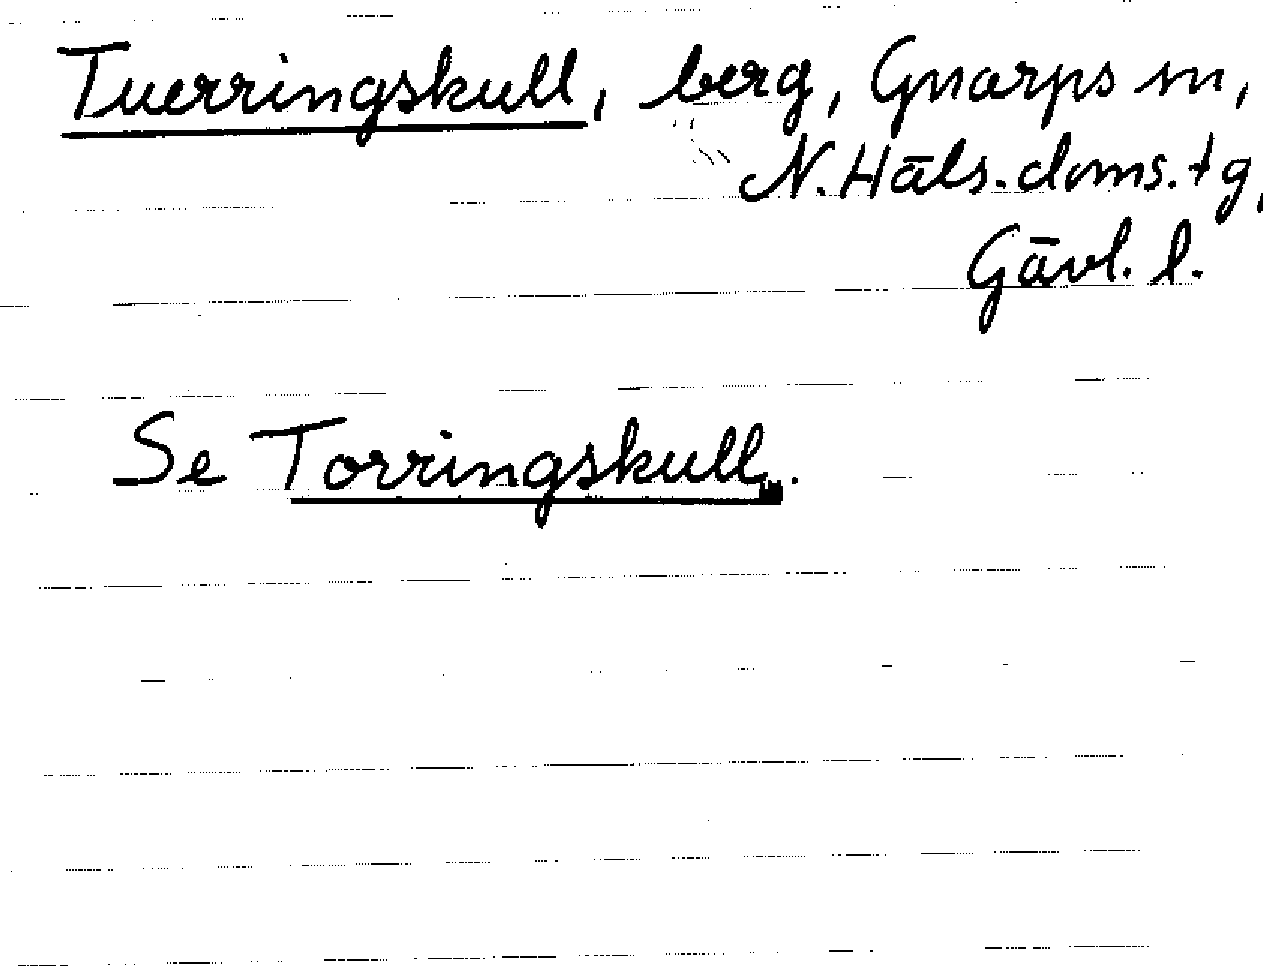 Tuerringskull, berg, Gnarps sn,
N. Häls. doms. tg,
Gävl. l.
Se Torringskull.